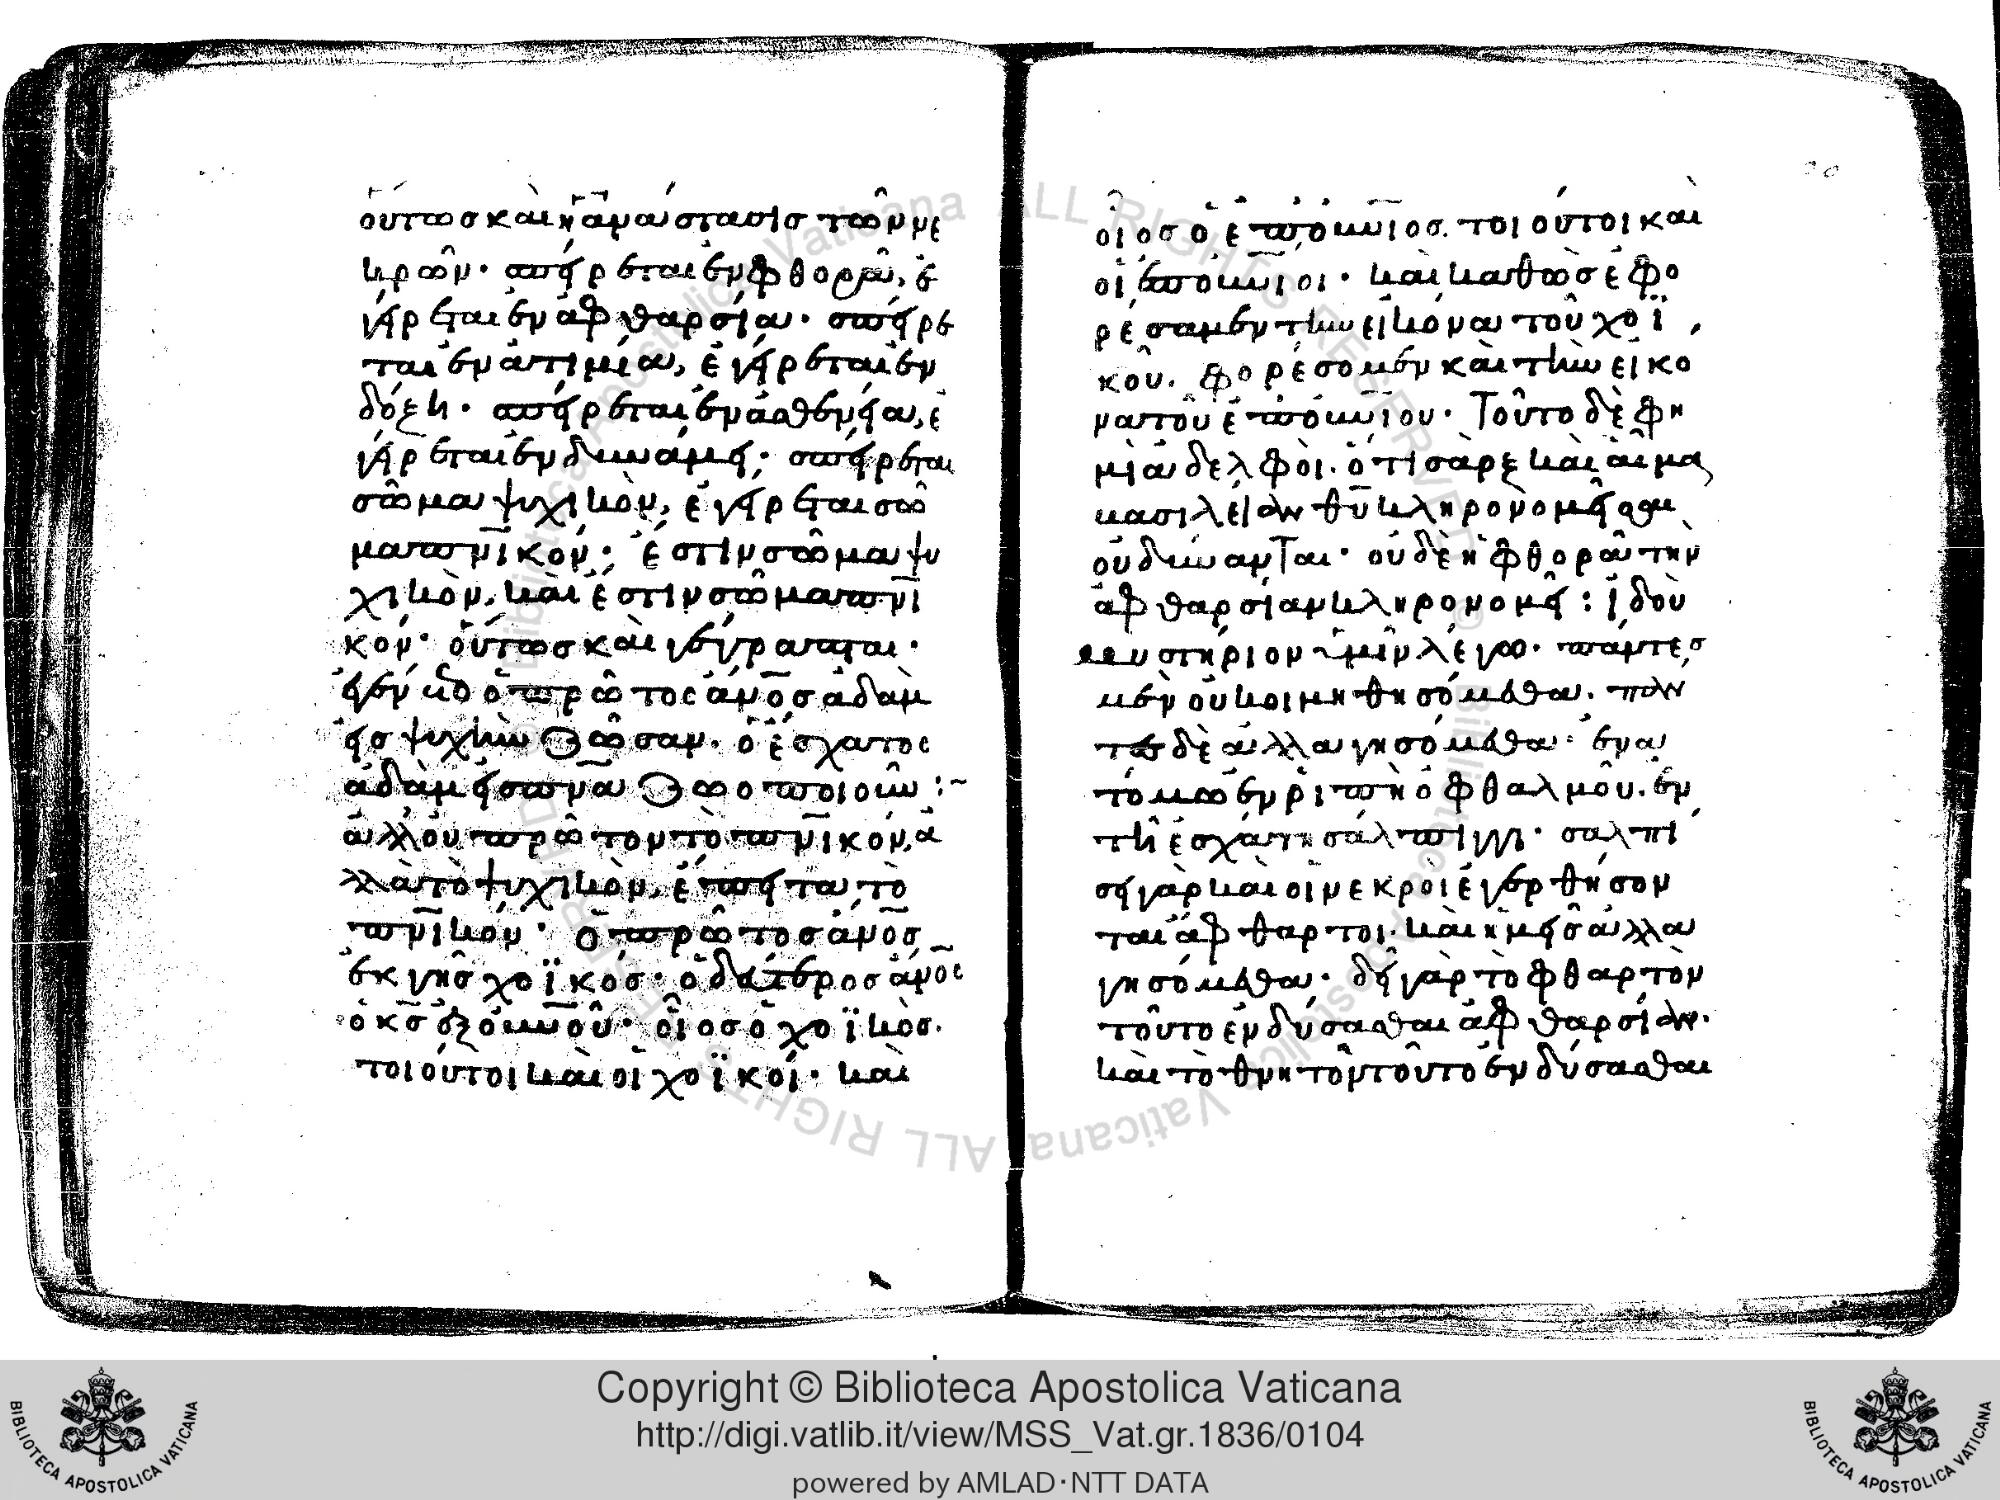 οὕτωσ καὶ ἡ ἀνάστασισ τῶν νε
κρῶν· σπείρεται ἐν φθορᾶ, ἐ
γείρεται ἐν ἀφθαρσία· σπείρε
ται ἐν ἀτιμία, ἐγείρεται ἐν
δόξη· σπείρεται ἐν ἀσθενεία, ἐ
γείρεται ἐν δυνάμει· σπείρεται
σῶμα ψυχικὸν, ἐγείρεται σῶ
μα πν̅ικόν· ἔστιν σῶμα ψυ
χικὸν, καὶ ἔστιν σῶμα πν̅ι
κόν· οὕτωσ καὶ γέγραπται·
ἐγένετο ὁ πρῶτοσ ἄνο̅σ ἀδὰμ
εἰσ ψυχὴν ζῶσαν· ὁ ἔσχατοσ
ἀδὰμ εἰσ πν̅α ζωοποιοῦν :~
ἀλλ' οὐ πρῶτον τὸ πν̅ικόν, ἀ
λλὰ τὸ ψυχικὸν, ἔπειτα τὸ
πν̅ικόν· ὁ πρῶτοσ ἄνο̅σ
ἐκ γῆσ χοϊκόσ· ὁ δεύτεροσ ἄνο̅σ
ὁ κ̅σ ἐξ οὐν̅οῦ· οἷοσ ὁ χοϊκὸσ.
τοιοῦτοι καὶ οἱ χοϊκοί· καὶ
οἷοσ ὁ ἐπουν̅ιοσ. τοιοῦτοι καὶ
οἱ ἐπουν̅ιοι· καὶ καθὼσ ἐφο
ρέσαμεν τὴν εἰκόνα τοῦ χοϊ
κοῦ. φορέσομεν καὶ τὴν εἰκό
να τοῦ ἐπουν̅ίου· Τοῦτο δὲ φη
μὶ ἀδελφοὶ. ὅτι σὰρξ καὶ αἷμα
βασιλείαν θ̅υ κληρονομῆσαι
οὐ δύνανται· οὐδὲ ἡ φθορὰ τὴν
ἀφθαρσίαν κληρονομεῖ : ἰδοὺ
μυστήριον ὑμῖν λέγω· πάντεσ
μὲν οὐ κοιμηθησόμεθα. πάν
τεσ δὲ ἀλλαγησόμεθα· ἐν ἀ
τόμω ἐν ῥιπῆ ὀφθαλμοῦ. ἐν
τῆ ἐσχάτη σάλπιγγι· σαλπί
σει γὰρ καὶ οἱ νεκροὶ ἐγερθήσον
ται ἄφθαρτοι. καὶ ἡμεῖσ ἀλλα
γησόμεθα· δεῖ γὰρ τὸ φθαρτὸν
τοῦτο ἐνδύσασθαι ἀφθαρσίαν.
καὶ τὸ θνητὸν τοῦτο ἐνδύσασθαι
Copyright © Biblioteca Apostolica Vaticana
http://digi.vatlib.it/view/MSS_Vat.gr.1836/0104
powered by AMLAD·NTT DATA
BIBLIOTECA APOSTOLICA VATICANA
BIBLIOTECA APOSTOLICA VATICANA